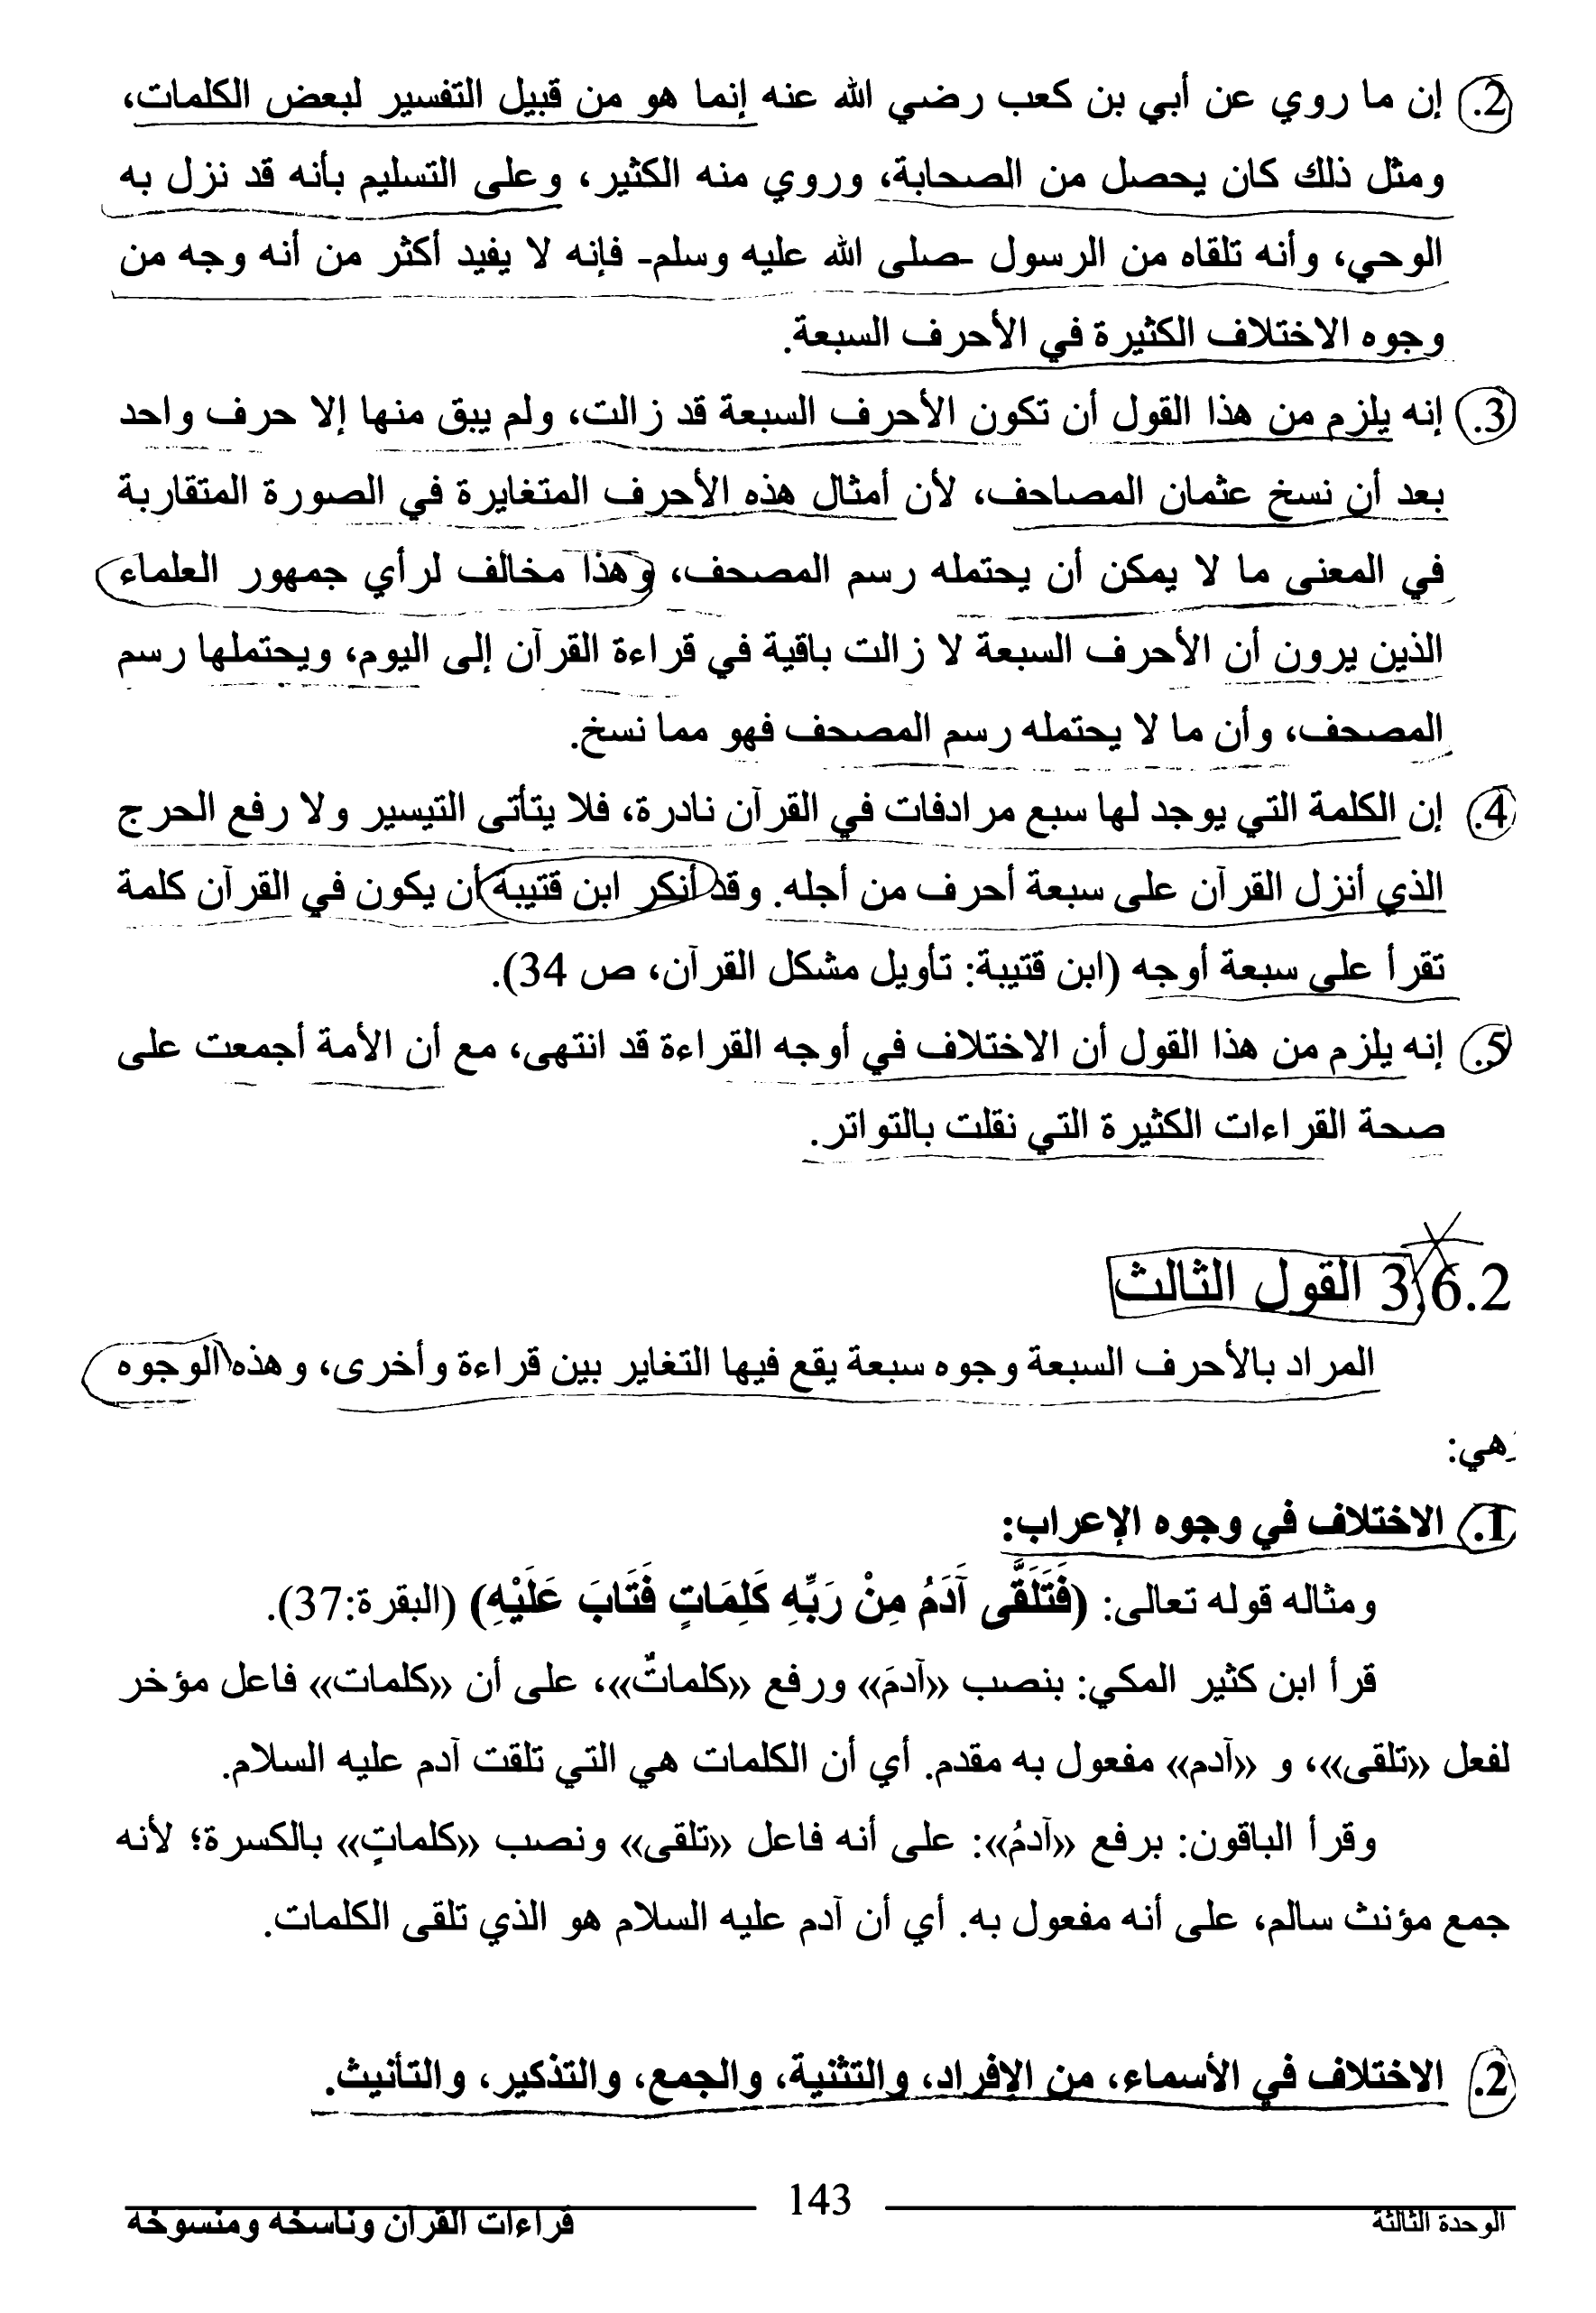 2. إن ما روي عن أبي بن كعب رضي الله عنه إنما هو من قبيل التفسير لبعض الكلمات،
ومثل ذلك كان يحصل من الصحابة، وروي منه الكثير، وعلى التسليم بأنه قد نزل به
الوحي، وأنه تلقاه من الرسول -صلى الله عليه وسلم- فإنه لا يفيد أكثر من أنه وجه من
وجوه الاختلاف الكثيرة في الأحرف السبعة.
3. إنه يلزم من هذا القول أن تكون الأحرف السبعة قد زالت، ولم يبق منها إلا حرف واحد
بعد أن نسخ عثمان المصاحف، لأن أمثال هذه الأحرف المتغايرة في الصورة المتقاربة
في المعنى ما لا يمكن أن يحتمله رسم المصحف، وهذا مخالف لرأي جمهور العلماء
الذين يرون أن الأحرف السبعة لا زالت باقية في قراءة القرآن إلى اليوم، ويحتملها رسم
المصحف، وأن ما لا يحتمله رسم المصحف فهو مما نسخ.
4. إن الكلمة التي يوجد لها سبع مرادفات في القرآن نادرة، فلا يتأتى التيسير ولا رفع الحرج
الذي أنزل القرآن على سبعة أحرف من أجله. وقد أنكر ابن قتيبة أن يكون في القرآن كلمة
تقرأ على سبعة أوجه (ابن قتيبة: تأويل مشكل القرآن، ص 34).
5. إنه يلزم من هذا القول أن الاختلاف في أوجه القراءة قد انتهى، مع أن الأمة أجمعت على
صحة القراءات الكثيرة التي نقلت بالتواتر.
3.6.2 القول الثالث
المراد بالأحرف السبعة وجوه سبعة يقع فيها التغاير بين قراءة وأخرى، وهذه الوجوه
هي:
1. الاختلاف في وجوه الإعراب:
ومثاله قوله تعالى: (فَتَلَقَّى آدَمُ مِنْ رَبِّهِ كَلِمَاتٍ فَتَابَ عَلَيْهِ) (البقرة:37).
قرأ ابن كثير المكي: بنصب «آدمَ» ورفع «كلماتٌ»، على أن «كلمات» فاعل مؤخر
لفعل «تلقى»، و «آدم» مفعول به مقدم. أي أن الكلمات هي التي تلقت آدم عليه السلام.
وقرأ الباقون: برفع «آدمُ»: على أنه فاعل «تلقى» ونصب «كلماتٍ» بالكسرة؛ لأنه
جمع مؤنث سالم، على أنه مفعول به. أي أن آدم عليه السلام هو الذي تلقى الكلمات.
2. الاختلاف في الأسماء، من الإفراد، والتثنية، والجمع، والتذكير، والتأنيث.
143
الوحدة الثالثة قراءات القرآن وناسخه ومنسوخه